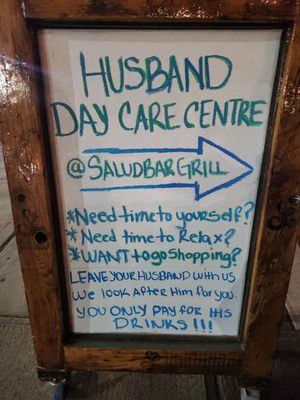 HUSBAND
DAY CARE CENTRE
@SALUDBARGRILL
*Need time to yourself?
*Need time to Relax?
*WANT to go Shopping?
LEAVE YOUR HUSBAND With US
We look After Him for you.
YOU ONLY PAY FOR HIS
DRINKS!!!